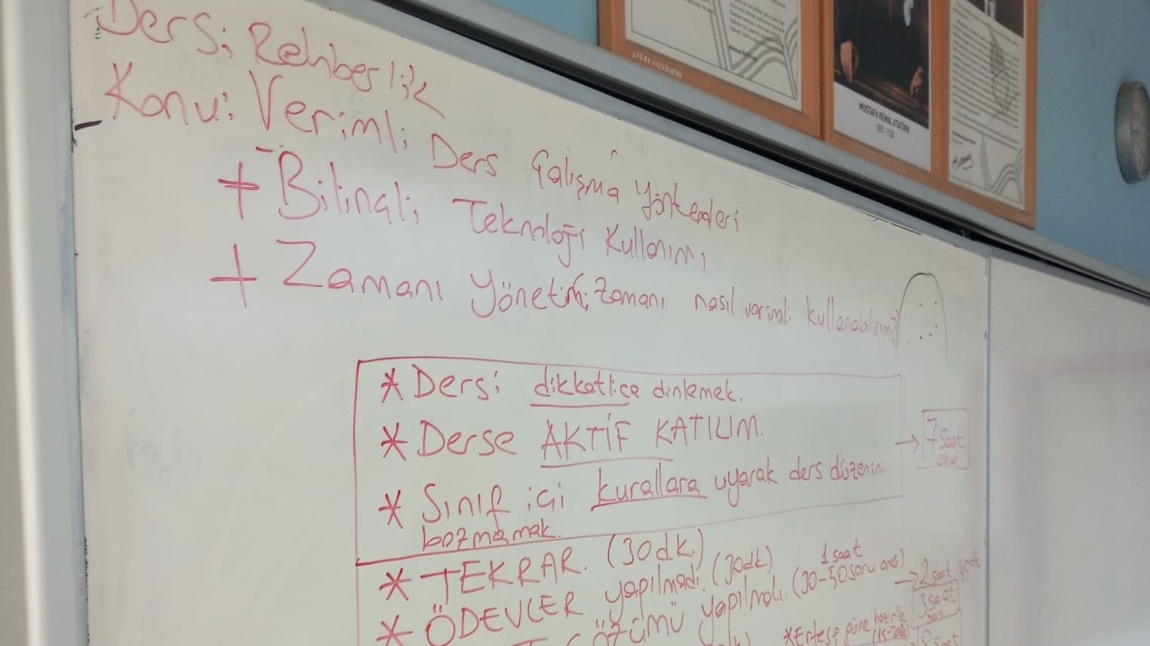 Ders: Rehberlik
Konu: Verimli Ders Çalışma Yöntemleri
+ Bilinçli Teknoloji Kullanımı
+ Zamanı Yönetimi; Zamanı nasıl verimli kullanabilirim?
* Dersi dikkatlice dinlemek.
* Derse AKTİF KATILIM.
* Sınıf içi kurallara uyarak ders düzenini
bozmamak.
→ 7 saat
* TEKRAR. (30dk.)
* ÖDEVLER yapılmadı. (30dk)
ÇÖZÜMÜ yapılmalı. (30-50 soru arası)
1 saat
→ 2 saat
3 saat
* Ertesi güne hazırlık
MUSTAFA KEMAL ATATÜRK
1881-1938